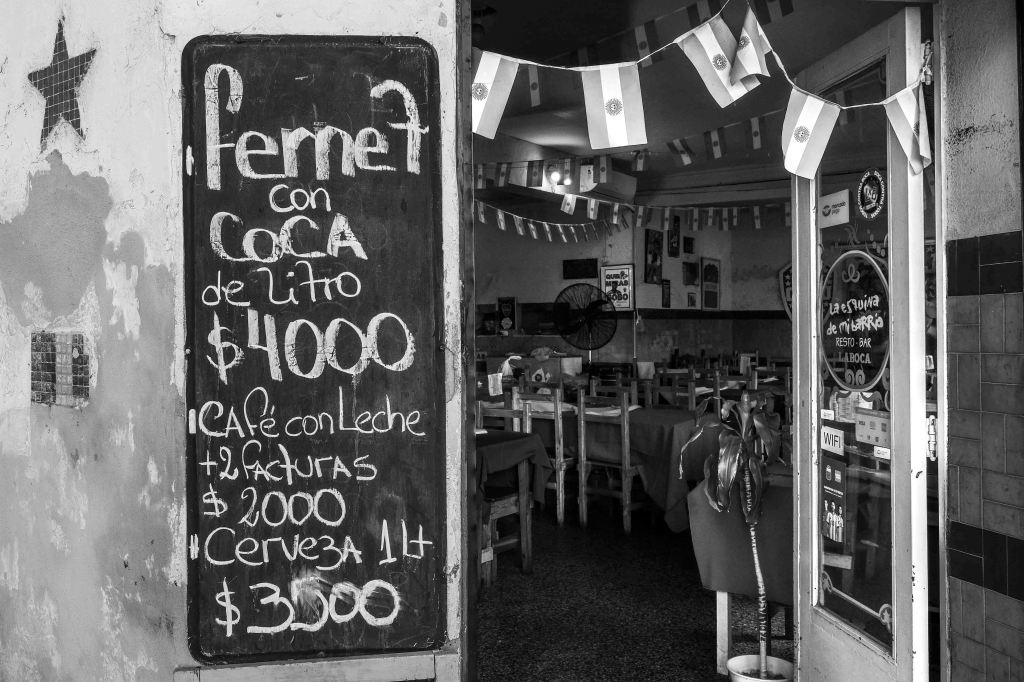 Fernet
con
COCA
de Litro
$4000
CAFé con Leche
+2 FACTURAS
$2000
Cerveza 1Lt
$3500
mercado
pago
La esquina
de mi barrio
RESTO-BAR
LABOCA
WIFI